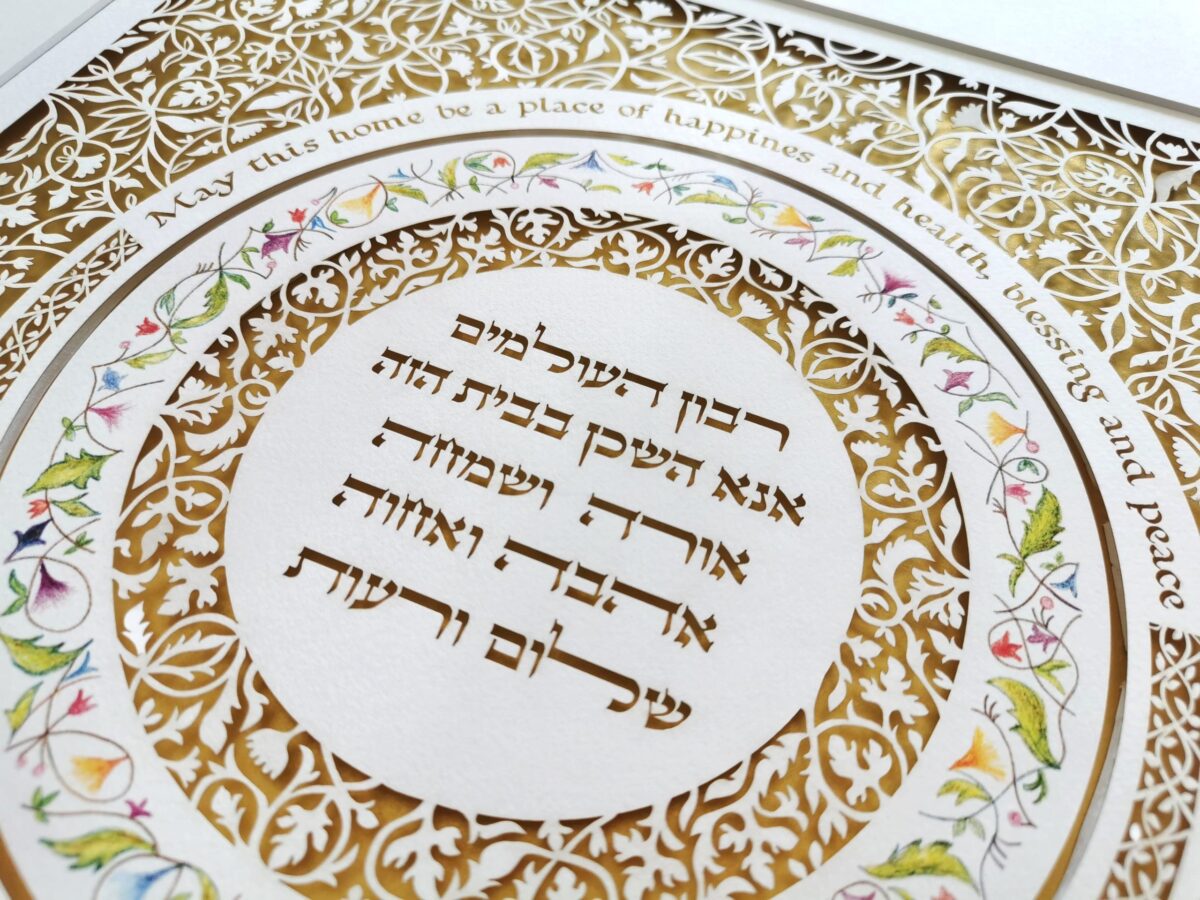 May this home be a place of happines and health, blessing and peace
רבון העולמים
אנא השכן בבית הזה
אורה ושמחה
אהבה ואחוה
שלום ורעות